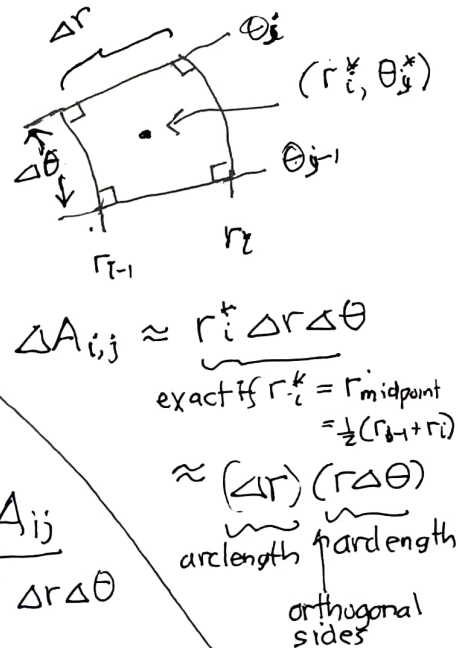 Δr
θj
(ri*, θj*)
Δθ
θj-1
ri-1
ri
ΔAi,j ≈ ri* Δr Δθ
exact if ri* = rmidpoint
= ½(ri-1+ri)
≈ (Δr) (rΔθ)
arclength arclength
Aij
ΔrΔθ
orthogonal
sides